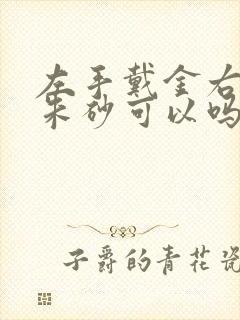 左手戴金右
朱砂可以吗
子爵的青花瓷